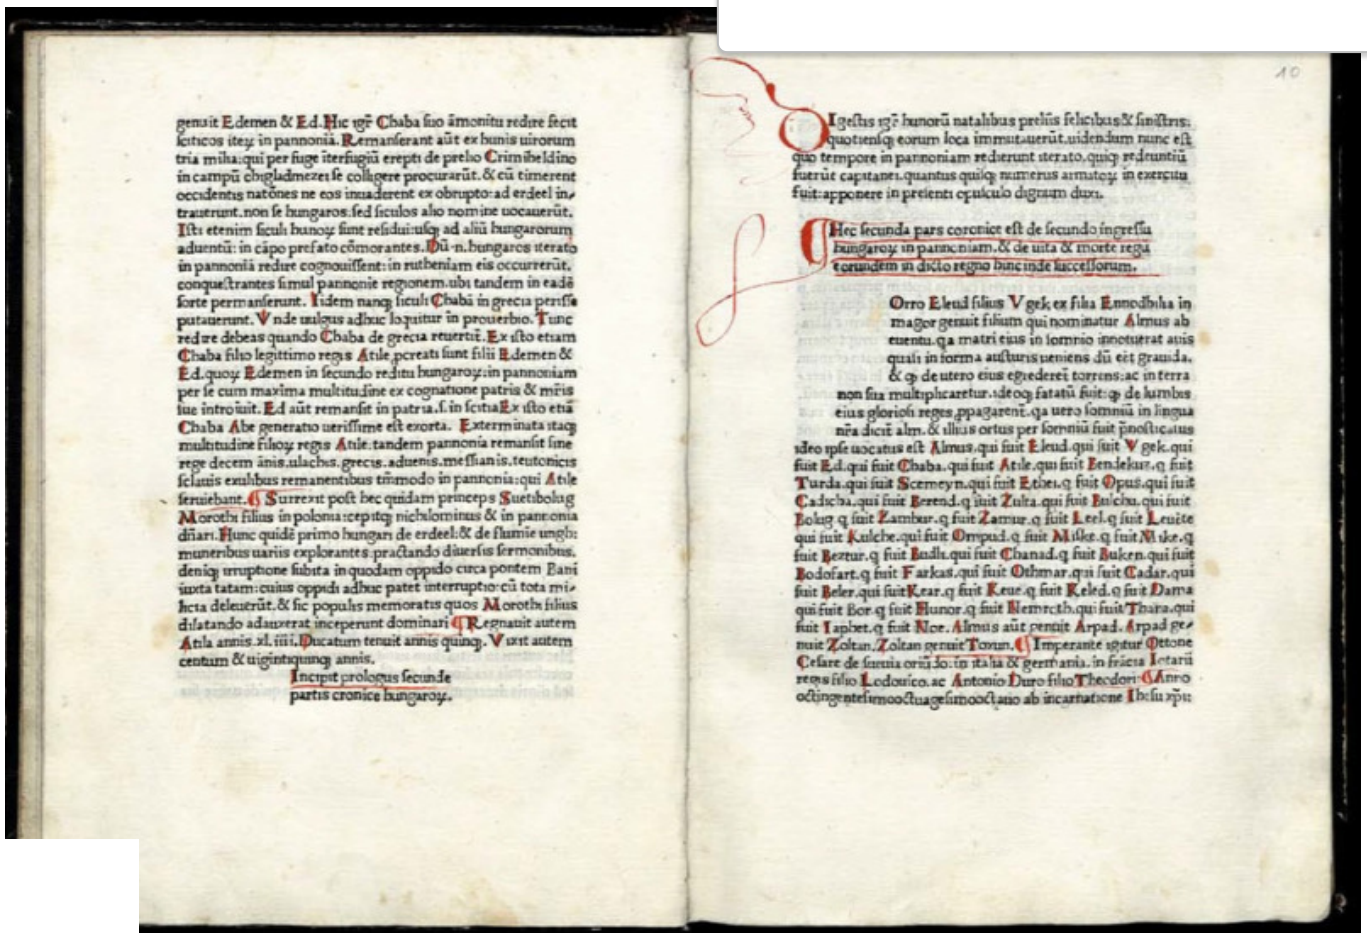 genuit Edemen & Ed. Hic igr̃ Chaba suo āmonitu redire fecit
sciticos iteꝝ in pannoniā. Remanserant aūt ex hunis uirorum
tria milia: qui per fuge iterfugiū erepti de prelio Crimiheldino
in campū chigladmezei se colligere procurarūt. & cū timerent
occidentis natōnes ne eos inuaderent ex obrupto: ad erdeel in⸗
trauerunt. non se hungaros: sed siculos alio nomine uocauerūt.
Isti etenim siculi hunoꝝ sunt residui: usqꝫ ad aliū hungarorum
aduentū: in cāpo prefato cōmorantes. Dū .n. hungaros iterato
in pannoniā redire cognouissent: in rutheniam eis occurrerūt,
conquestrantes simul pannonie regionem. ubi tandem in eadē
sorte permanserunt. Iidem nanqꝫ siculi Chabā in grecia perisse
putauerunt. Vnde uulgus adhuc loquitur in prouerbio. Tunc
redire debeas quando Chaba de grecia reuertit̃. Ex isto etiam
Chaba filio legittimo regis Atile ꝓcreati sunt filii Edemen &
Ed. quoꝝ Edemen in secundo reditu hungaroꝝ: in pannoniam
per se cum maxima multitudine ex cognatione patris & mr̃is
sue introiuit. Ed aūt remansit in patria .s. in scitia Ex isto etiā
Chaba Abe generatio uerissime est exorta. Exterminata itaqꝫ
multitudine filioꝝ regis Atile. tandem pannonia remansit sine
rege decem ānis. ulachis. grecis. aduenis. messianis. teutonicis
sclauis exulibus remanentibus tm̄modo in pannonia: qui Atile
seruiebant. ¶ Surrexit post hec quidam princeps Suetibolug
Moroth filius in polonia: cepitqꝫ nichilominus & in pannonia
dn̄ari. Hunc quidē primo hungari de erdeel: & de flumie ungh:
muneribus uariis explorantes. practando diuersis sermonibus.
deniqꝫ irruptione subita in quodam oppido circa pontem Bani
iuxta tatam: cuius oppidi adhuc patet interruptio: cū tota mi⸗
licia deleuerūt. & sic populis memoratis quos Moroth filius
dilatando adauxerat inceperunt dominari ¶ Regnauit autem
Atila annis. xl. iiii. Ducatum tenuit annis quinqꝫ. Vixit autem
centum & uigintiquinqꝫ annis.
Incipit prologus secunde
partis cronice hungaroꝝ.
10
DIgestis igr̃ hunorū natalibus preliis felicibus & sinistris:
quotiensqꝫ eorum loca immutauerūt. uidendum nunc est
quo tempore in pannoniam redierunt iterato. quiqꝫ redeuntiū
fuerūt capitanei. quantus quisqꝫ numerus armatoꝝ in exercitu
fuit: apponere in presenti opusculo dignum duxi.
¶ Hec secunda pars coronice est de secundo ingressu
hungaroꝝ in pannoniam. & de uita & morte regū
eorundem in dicto regno hincinde successorum.
Orro Eleud filius Vgek ex filia Ennodbilia in
magor genuit filium qui nominatur Almus ab
euentu. qa matri eius in somnio innotuerat auis
quasi in forma austuris ueniens dū eēt grauida.
& qꝫ de utero eius egrederet̃ torrens: ac in terra
non sua multiplicaretur. ideoqꝫ fatatū fuit: qꝫ de lumbis
eius gloriosi reges ꝓpagarent̃. qa uero somniū in lingua
nr̃a dicit̃ alm. & illius ortus per somniū fuit p̄nosticatus
ideo ipse uocatus est Almus. qui fuit Eleud. qui fuit Vgek. qui
fuit Ed. qui fuit Chaba. qui fuit Atile. qui fuit Bendekuz. q̃ fuit
Turda. qui fuit Scemeyn. qui fuit Ethei. q̃ fuit Opus. qui fuit
Cadicha. qui fuit Berend. q̃ fuit Zulta. qui fuit Bulchu. qui fuit
Bolug. q̃ fuit Zambur. q̃ fuit Zamur. q̃ fuit Leel. q̃ fuit Leuēte
qui fuit Kulche. qui fuit Ompud. q̃ fuit Miske. q̃ fuit Mike. q̃
fuit Beztur. q̃ fuit Budli. qui fuit Chanad. q̃ fuit Buken. qui fuit
Bodofart. q̃ fuit Farkas. qui fuit Othmar. qui fuit Cadar. qui
fuit Beler. qui fuit Kear. q̃ fuit Keue. q̃ fuit Keled. q̃ fuit Dama
qui fuit Bor. q̃ fuit Hunor. q̃ fuit Nemroth. qui fuit Thara. qui
fuit Iaphet. q̃ fuit Noe. Almus aūt genuit Arpad. Arpad ge⸗
nuit Zoltan. Zoltan genuit Toxun. ¶ Imperante igitur Ottone
Cesare de sueuia oriūdo: in italia & germania. in frācia Lotarii
regis filio Lodouico. ac Antonio Duro filio Theodori: ¶ Anno
octingentesimooctuagesimooctauo ab incarnatione Ihesu xp̄i: